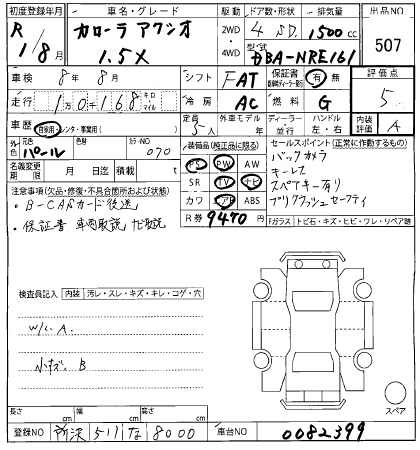 初度登録年月 車名・グレード 駆動 ドア数・形状 排気量 出品NO
R 1/8月 カローラ アクシオ 1.5X 2WD 4WD 4 SD. 1500cc 507
型式 DBA-NRE161
車検 8年 8月 シフト FAT 保証書 有 無 評価点
走行 1万0千168 キロ マイル 冷房 AC 燃料 G 5
車歴 自家用・レンタ・事業用( ) 定員 5人 外車モデル 年 ディーラー 並行 ハンドル 左・右 内装評価 A
外色 元色 パール 色替 カラーNO 070
名義変更期限 月 日迄 積載 t
装備品(純正品に限る)
PS PW AW
SR TV ナビ
カワ エアB ABS
R券 9470円
セールスポイント(正常に作動するもの)
バックカメラ
キーレス
スペアキー有り
プリクラッシュセーフティ
Fガラス トビ石・キズ・ヒビ・ワレ・リペア跡
注意事項(欠品・修復・不具合箇所および状態)
・B-CASカード後送
・保証書 車両取説 ナビ取説
検査員記入 内装 汚レ・スレ・キズ・キレ・コゲ・穴
W/C A.
小キズ. B
スペア
長さ cm 幅 cm 高さ cm
登録NO 所沢 511 な 8000 車台NO 0082399